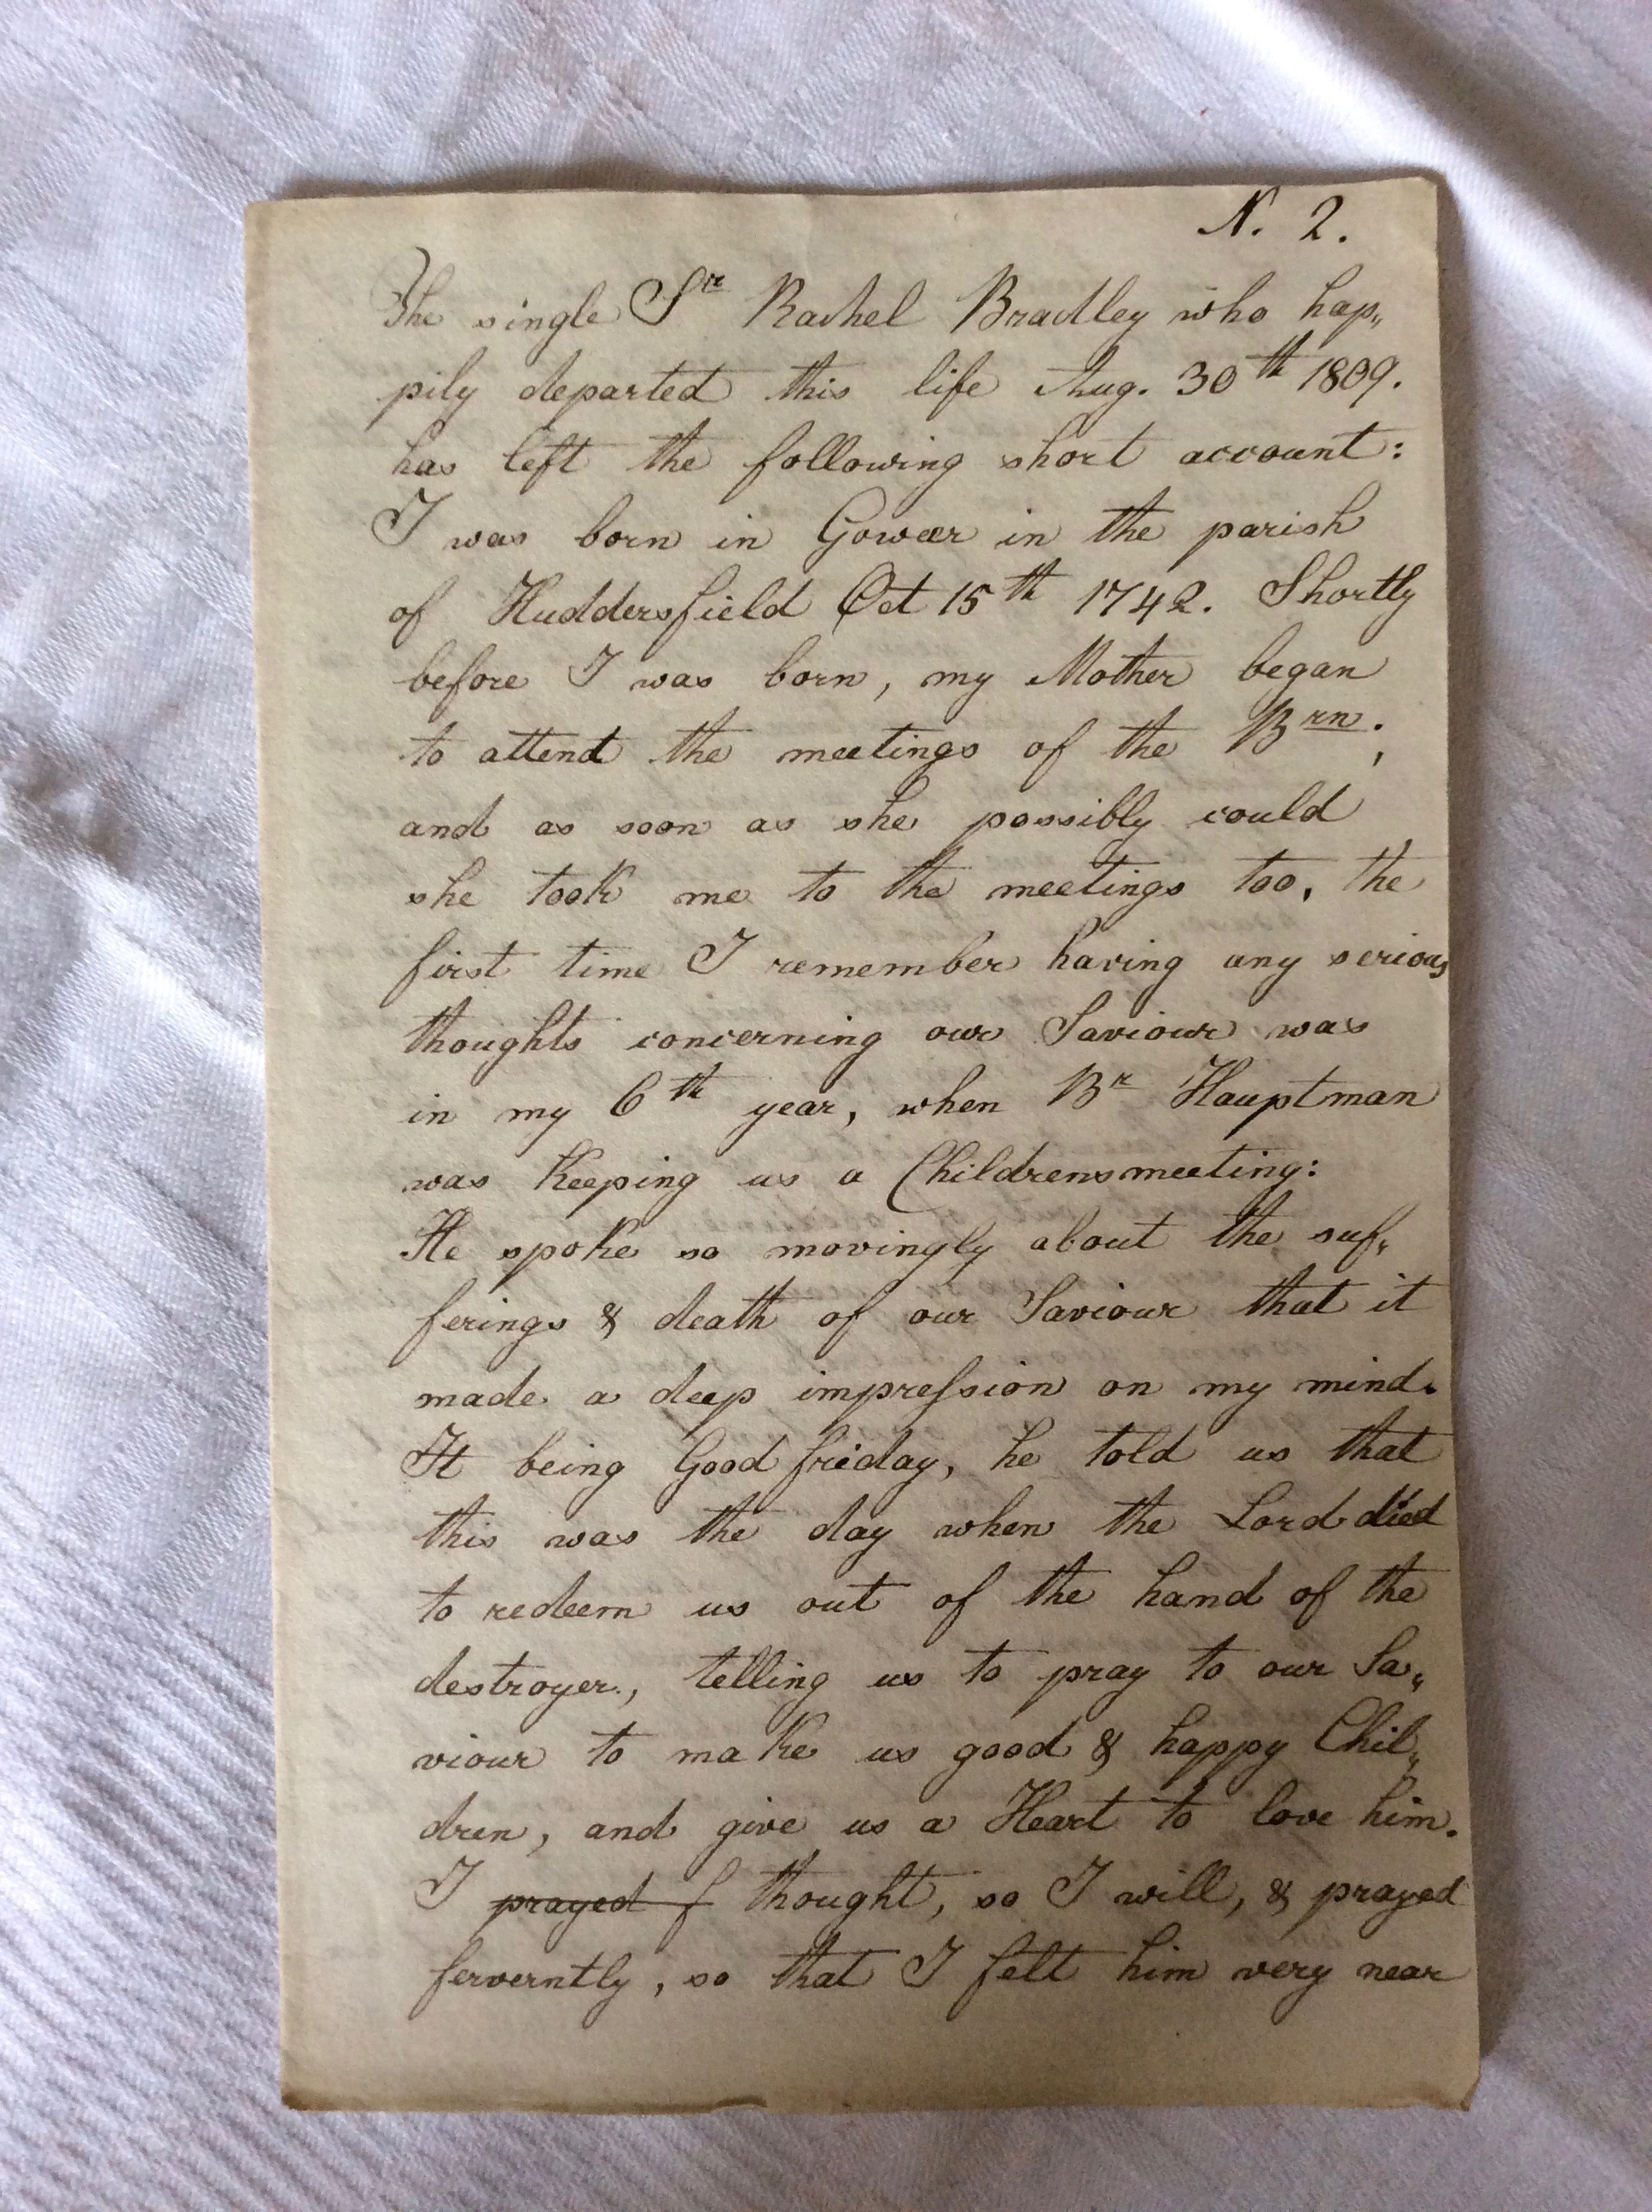 N. 2.
The single Sr Rachel Bradley who hap„
pily departed this life Aug. 30th 1809.
has left the following short account:
I was born in Gower in the parish
of Huddersfield Oct 15th 1742. Shortly
before I was born, my Mother began
to attend the meetings of the Brn.;
and as soon as she possibly could
she took me to the meetings too, the
first time I remember having any serious
thoughts concerning our Saviour was
in my 6th year, when Br Hauptman
was keeping us a Childrensmeeting:
He spoke so movingly about the suf„
ferings & death of our Saviour that it
made a deep impreſsion on my mind.
It being Good friday, he told us that
this was the day when the Lord died
to redeem us out of the hand of the
destroyer, telling us to pray to our Sa„
viour to make us good & happy Chil„
dren, and give us a Heart to love him.
I prayed f thought, so I will, & prayed
ferverntly, so that I felt him very near